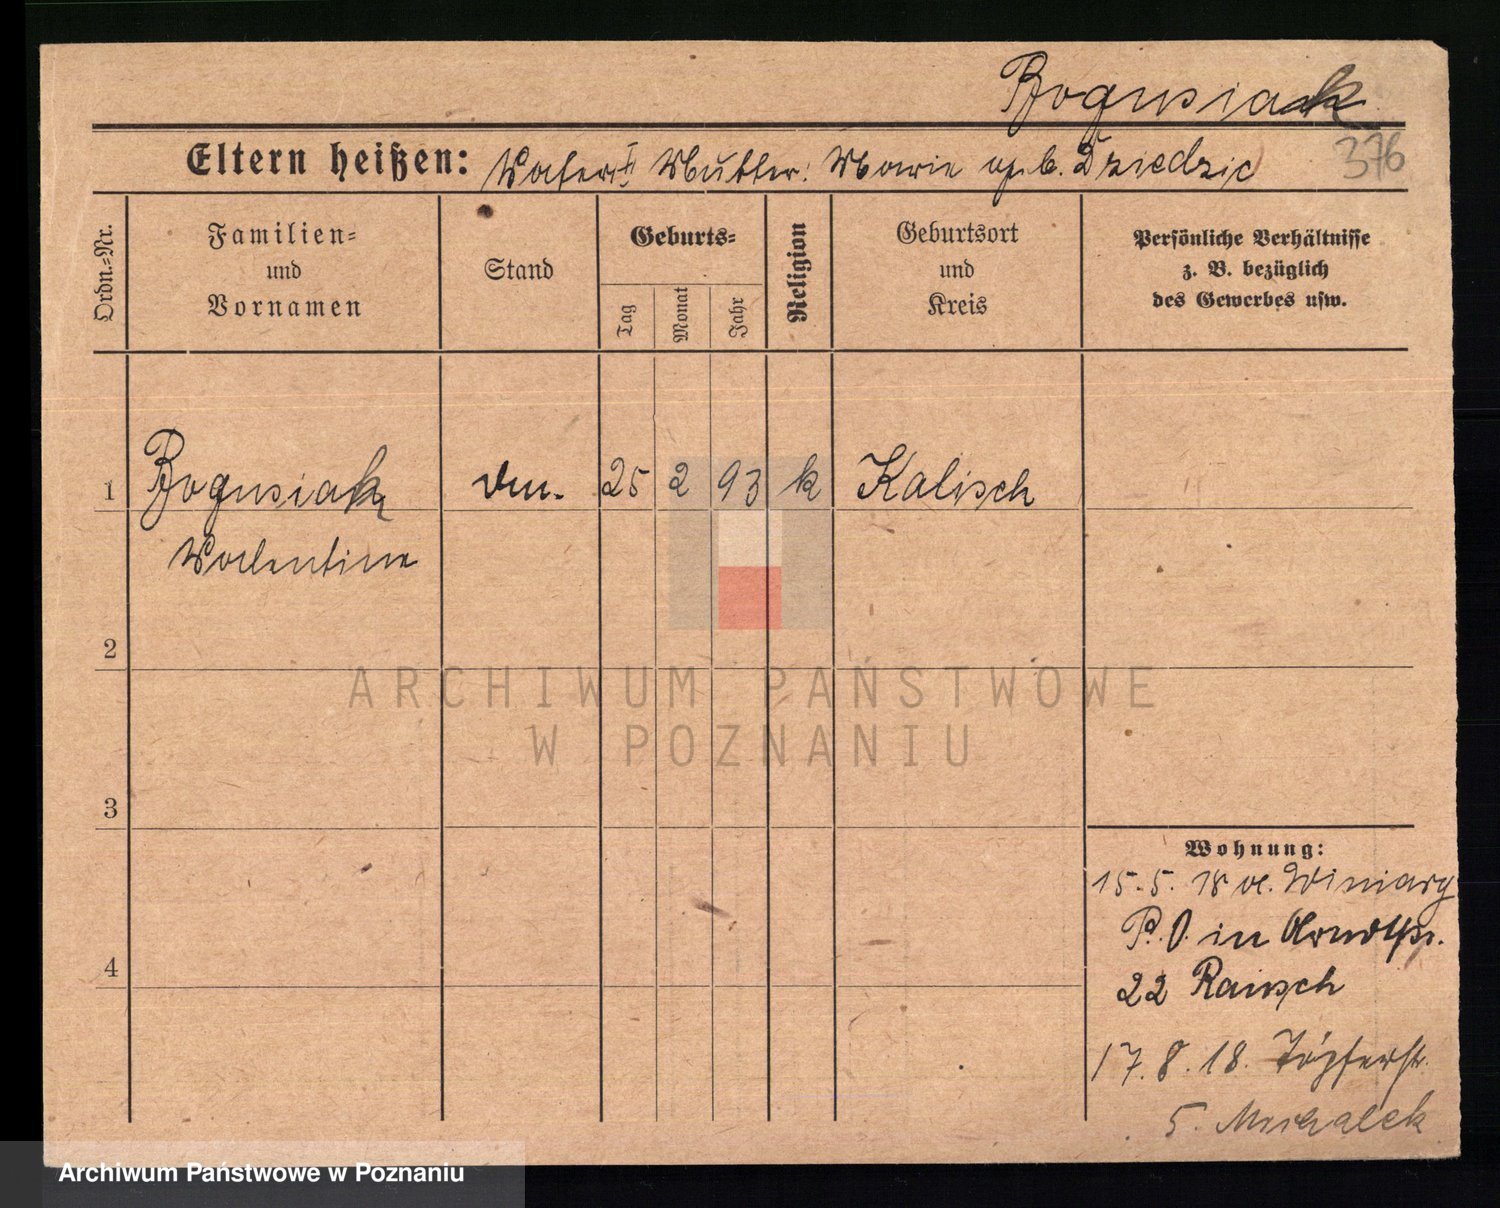 Bogusiak
376
Eltern heißen: Vater: Mutter: Marie geb. Dziedzic
Ordn.=Nr.
Familien=
und
Vornamen
Stand
Geburts=
Tag
Monat
Jahr
Religion
Geburtsort
und
Kreis
Persönliche Verhältnisse
z. B. bezüglich
des Gewerbes usw.
1 Bogusiak 25 2 93 k Kalisch
Valentine
2
3
4
Wohnung:
15.5.18 Winiary
P. O. in Arndtstr.
22 Raisch
17.8.18. Töpferstr.
5. Michalek
ARCHIWUM PAŃSTWOWE
W POZNANIU
Archiwum Państwowe w Poznaniu